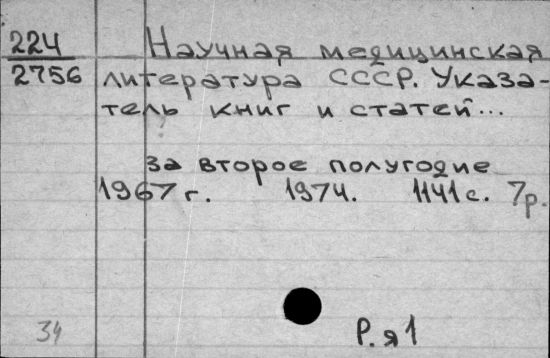 224
2756
Научная медицинская
литература СССР. Указа-
тель книг и статей...
за второе полугодие
1967 г. 1974. 1141 с. 7р.
34
Р. я1